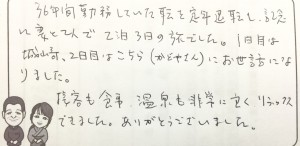 36年間勤務していた転を定年退転し、記念
に妻とてんで2泊3日の旅でした。1日目は
城崎、2日目はこちら(かどやさん)にお世話にな
りました。
接客も食事、温泉も非常に良くリラックス
できました。ありがとうございました。